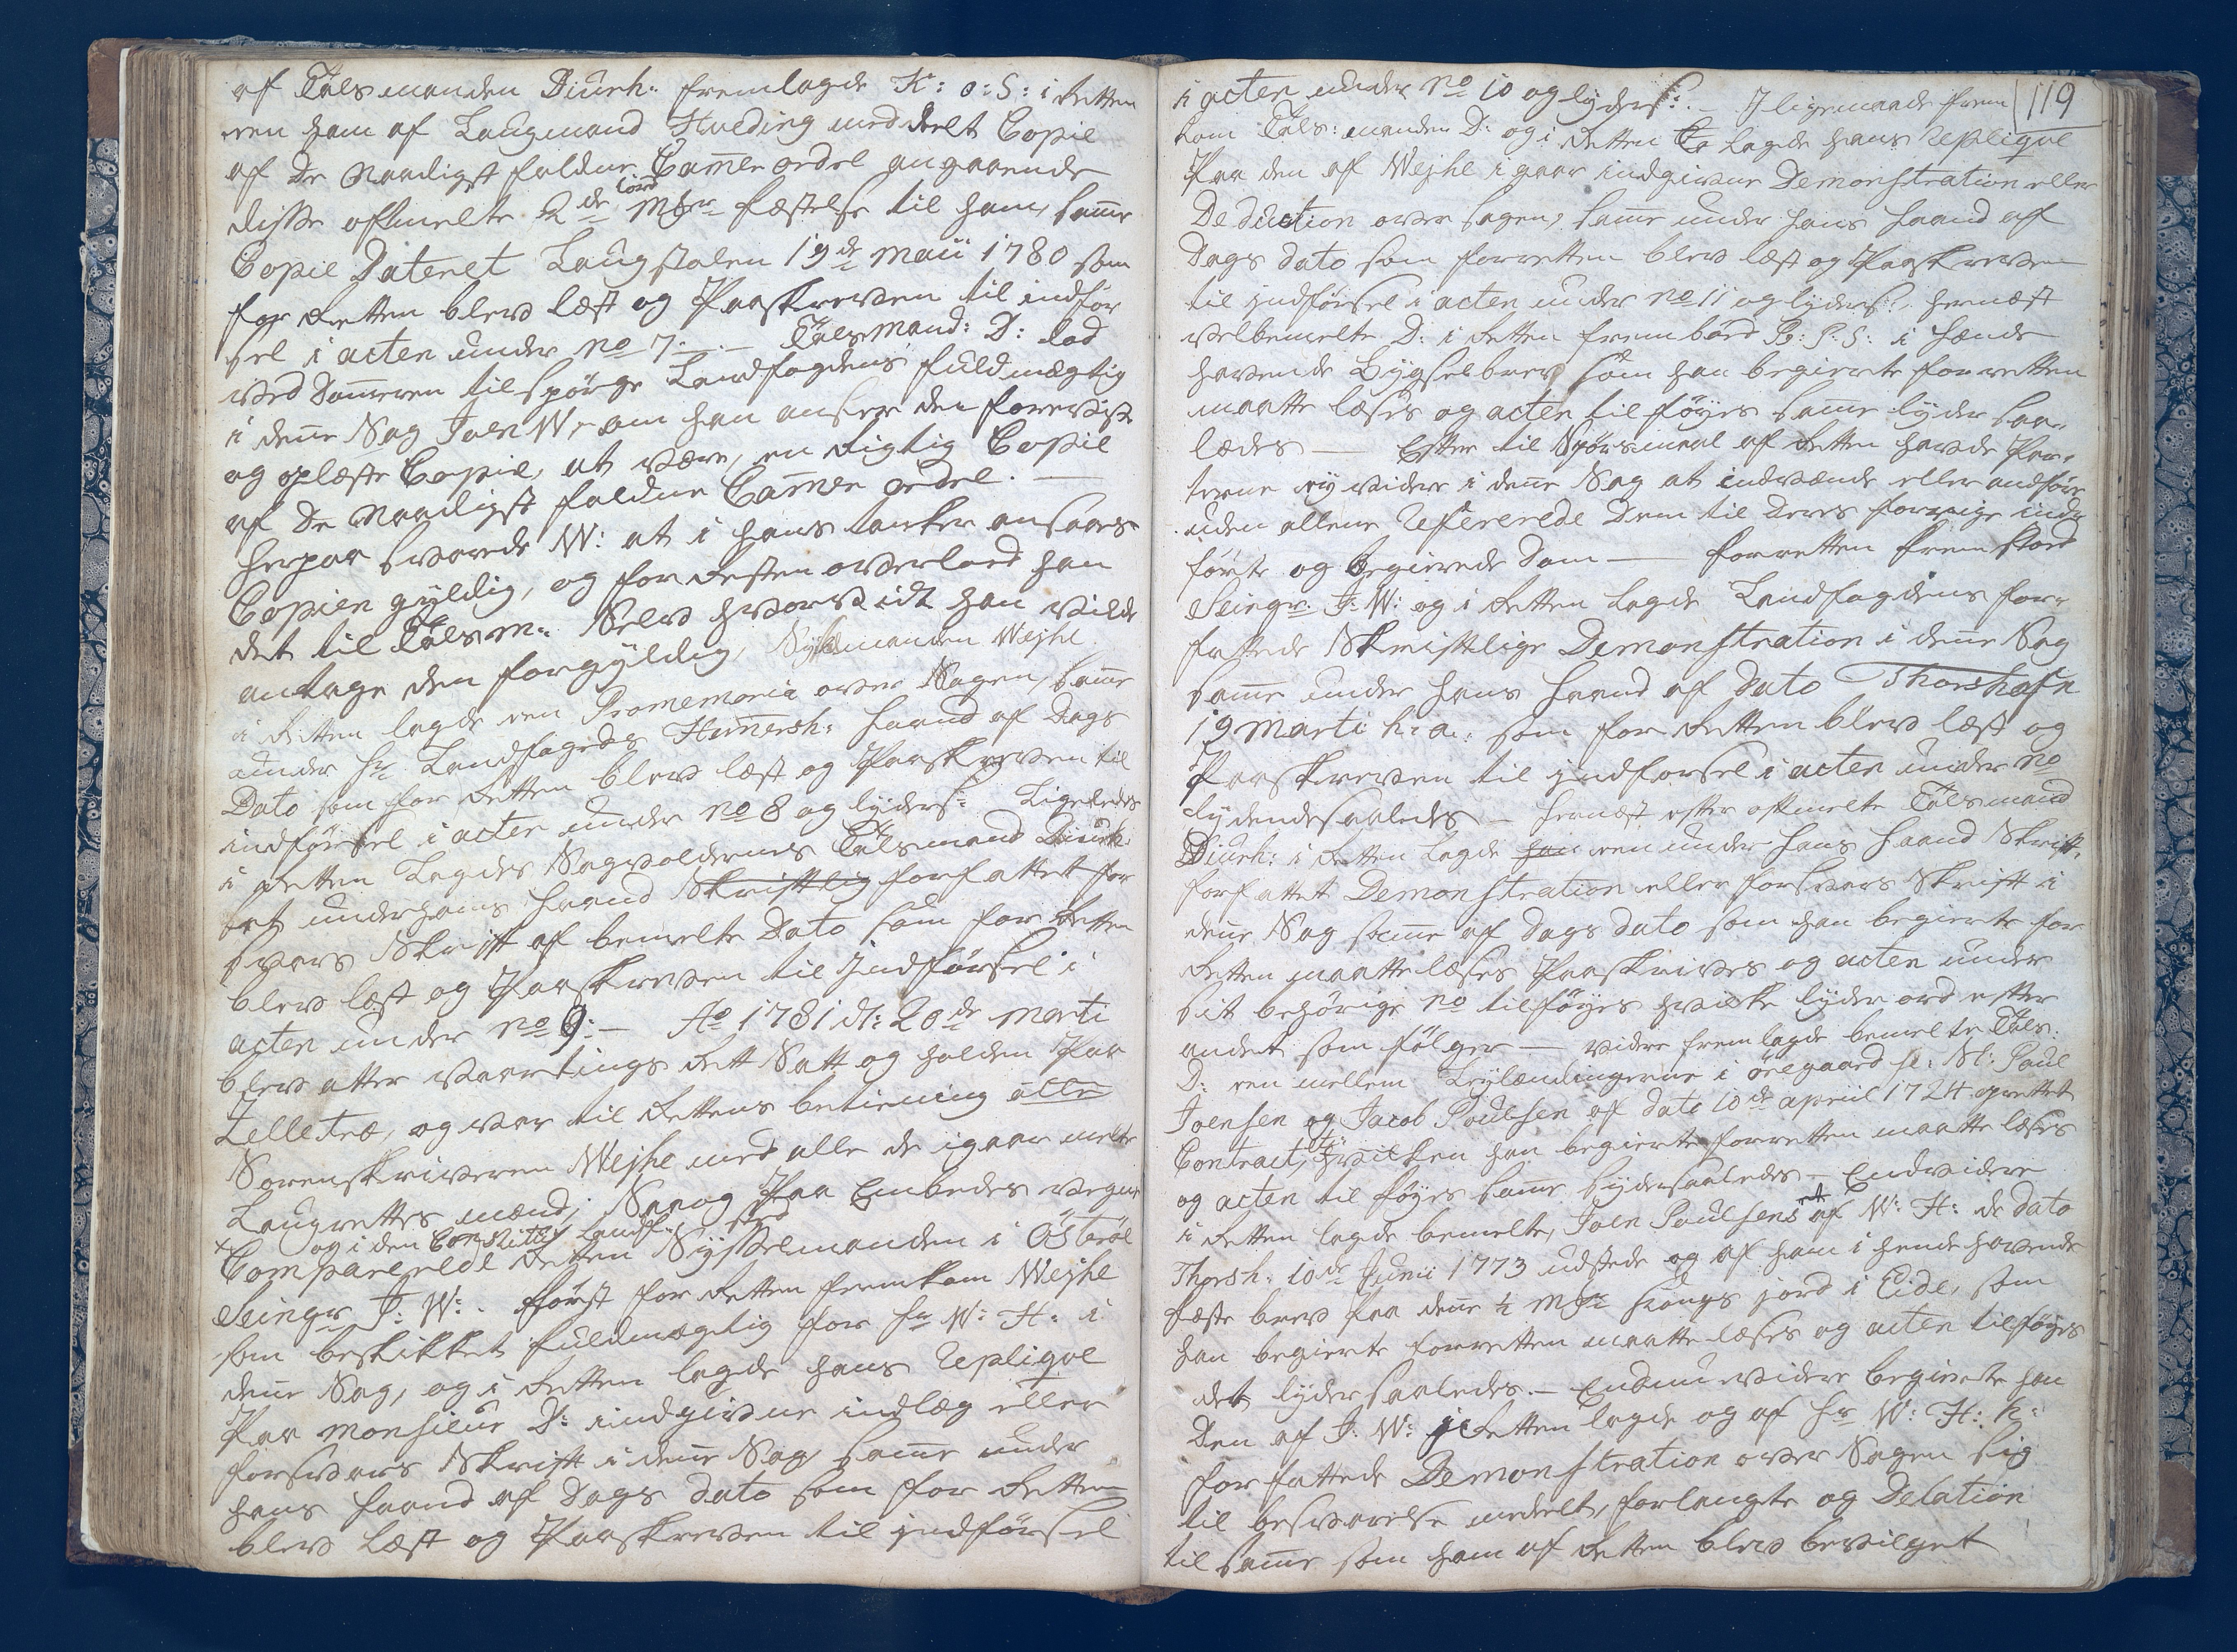 af Talsmanden Diurh: fremlagde K: o: S: i Retten
een ham af Laugmand Hveding meddeelt Copie
af De Naadigst faldne Camer ordre angaaende
disse oftmelte 2de Mkr Jord fæstelse til ham, samme
Copie Dateret Laugstolen 19de Maii 1780 som
for Retten blev læst og Paaskreven til indfør
sel i acten under No 7. — Talsmand: D: lod
ved Dommeren tilspørge Landfogdens fuldmægtig
i denne Sag Joen W, om han anseer den foreviste
og oplæste Copie, at være, en Rigtig Copie
af De Naadigst faldne Camer ordre. —
herpaa svarede W: at i hans tanker ansaaes
Copien gyldig, og for Resten overlod han
det til Talsm: Selv hvorvidt han vilde
antage den forgyldig, Sysselmanden Wejhe
i Retten lagde een Promemoria over Sagen, samme
under Hr Landfogeds Hamersh: haand af Dags
Dato som for Retten blev læst og Paaskreven til
indførsel i acten under No 8 og lyder S: Ligeledes
i Retten Lagdes Sagvoldernes Talsmand Diurh:
et under hans haand Skriftlig forfattet for
svars Skrift af bemelte Dato som for Retten
blev læst og Paaskreven til Jndførsel i
acten under No 9: — Ao 1781 d: 20de Marti
blev atter vaartings Rett Satt og holden Paa
Zelletræ, og var til Rettens betiening alle
Sorenskriveren Wejhe med alle de igaar melte
Laugrettes mænd, Saaog Paa Embedes vegne
og i den Constitu: Landf: sted
Comparerede Retten Sysselmanden i Østerøe
Seingr J: W: . først for Retten fremkom Wejhe
som beskikket fuldmægtig for Hr W: H: i
denne Sag, og i Retten lagde hans Replique
Paa Monsieur D: indgivne indlæg eller
forsvars Skrift i denne Sag samme under
hans haand af Dags dato som for Retten
blev Læst og Paaskreven til jndførsel
119
i acten under No 10 og lyder S: — Jligemaade frem
kom Tals: manden D: og i Retten Lagde hans Replique
Paa den af Wejhe i gaar indgivne Demonstration eller
Deduction over sagen, samme under hans haand af
Dags dato som for retten blev læst og Paaskreven
til jndførsel i acten under No 11 og lyder S: hernæst
velbemelte D: i Retten frembar P: P: S: i hænde
havende Bygselbrev som han begierte for retten
maatte læses og acten tilføyes samme lyder saa-
ledes — Efter tilspørsmaal af Retten havde Par-
terne ey videre i denne Sag at indvænde eller andføre
uden allene Refererede Dem til Deres forrige ind-
førte og begierede Dom — for retten frem stod
Seingr: J: W: og i Retten lagde Landfogdens for-
fattede Skriftlige Demonstration i denne Sag
samme under hans haand af dato Thorshafn
19 Marti h: a: som for Retten blev læst og
Paaskreven til jndførsel i acten under No
lydendesaaledes — hernæst efter oftmelte Talsmand
Diurh: i Retten lagde een under hans haand Skrift-
forfattet Demonstration eller forsvars Skrift i
denne Sag samme af Dags dato som han begierte for
Retten maatte læses Paaskrives og acten under
sit behørige No tilføyes hvilke lyder ord efter
andet som følger — videre fremlagde bemelte Tals:
D: een mellem Leylændingerne i øregaard Sl: Sl: Paul
Joensen og Jacob Poulsen af dato 10de april 1724 oprettet
Contract, hvilken han begierte for retten maatte læses
og acten tilføyes samme lyder saaledes — Endvidere
i Retten lagde bemelte, Joen Paulsens et af W: H: de dato
Thorsh: 10de Junii 1773 udstede og af ham i hende havende
fæste brev paa denne ½ Mk Kongs jord i Eide, som
han begierte for retten maatte læses og acten tilføyes
det lyder saaledes. — Endnu videre begierte han
Den af J: W: i Retten lagde og af Hr W: H: h:
forfattede Demonstration over Sagen sig
til besvarelse meddelt, forlangte og Delation
til samme som ham af Retten blev bevilget